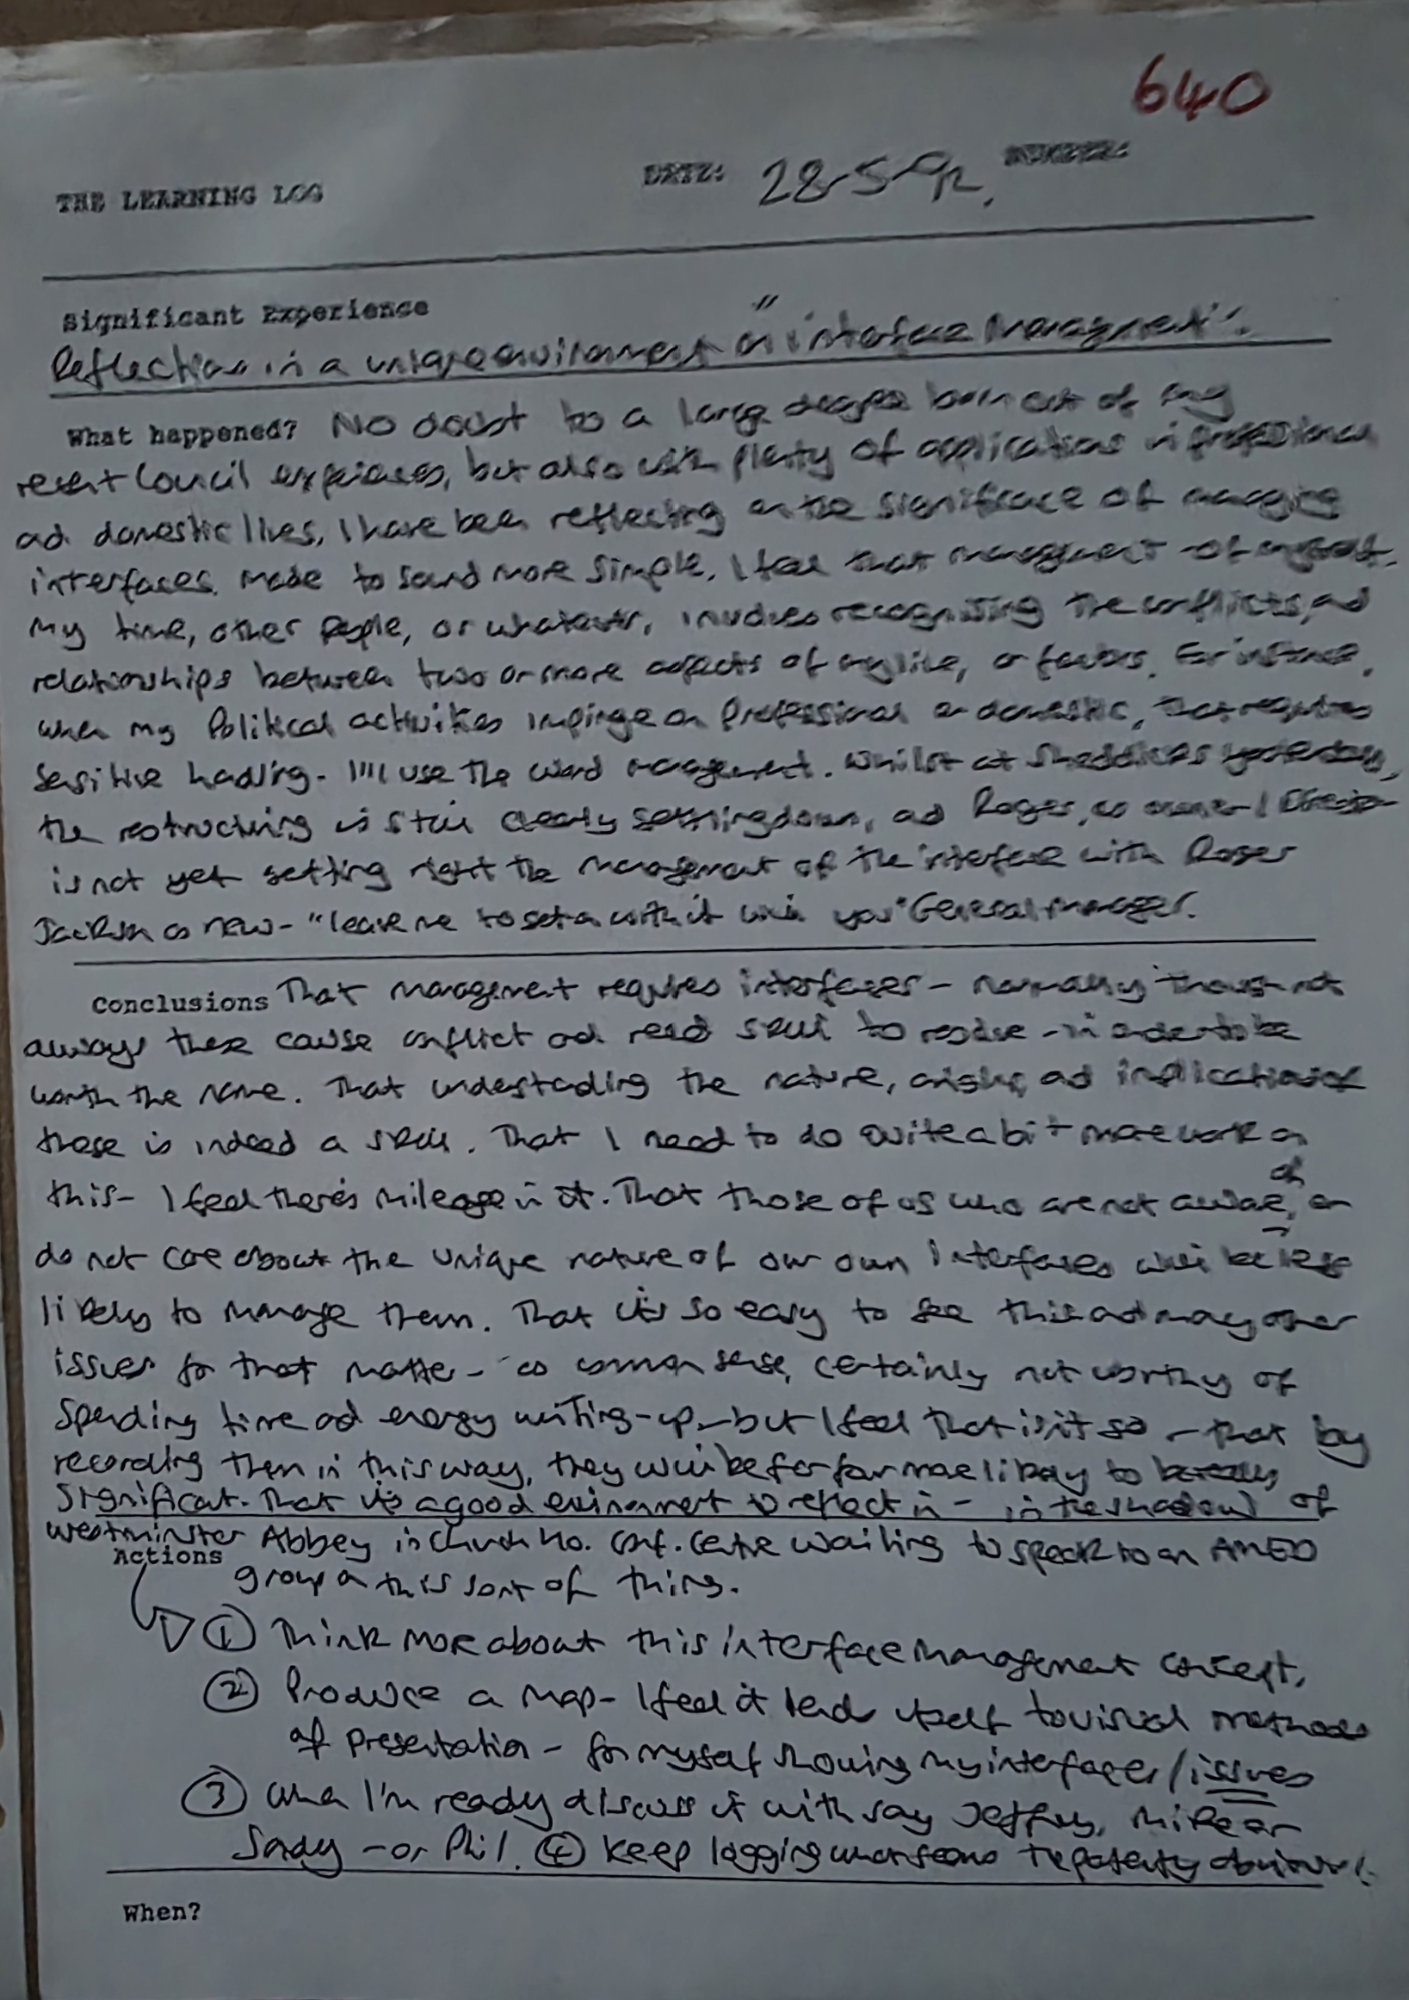 640
THE LEARNING LOG DATE: 28-5-92. NUMBER:
Significant Experience
Reflections in a unique environment on "interface management".
What happened? No doubt to a large degree born out of my
recent Council experiences, but also with plenty of applications in professional
ad domestic lives, I have been reflecting on the significance of managing
interfaces. Made to sound more simple, I feel that management of myself,
my time, other people, or whatever, involves recognising the conflicts, ad
relationships between two or more aspects of my life, or factors. For instance,
when my Political activities impinge on Professional or domestic, that requires
sensitive handling - I'll use the word management. Whilst at yesterday,
the restructuring is still clearly settling down, ad Roger, as owner / Director
is not yet getting right the management of the interface with Roger
Jackson as new - "leave me to get on with it will you" General Manager.
Conclusions That management requires interfaces - normally though not
always these cause conflict ad need skill to resolve - in order to be
worth the name. That understading the nature, origins, ad implications of
these is indeed a skill. That I need to do quite a bit more work on
this - I feel there's mileage in it. That those of us who are not aware of, or
do not care about the unique nature of our own interfaces will be less
likely to manage them. That it's so easy to see this ad many other
issues for that matter - as common sense, certainly not worthy of
spending time ad energy writing-up, - but I feel that isn't so - that by
recording them in this way, they will be far far more likely to
significant. That it's a good environment to reflect in - in the shadow of
Westminster Abbey in Church Ho. Conf. Centre waiting to speak to an AMED
Actions group on this sort of thing.
① Think more about this interface management concept.
② Produce a map - I feel it lends itself to visual methods
of presentation - for myself showing my interfaces / issues
③ When I'm ready discuss it with say Jeffrey, Mike or
Sandy - or Phil. ④ Keep logging what seems the patently obvious!
When?